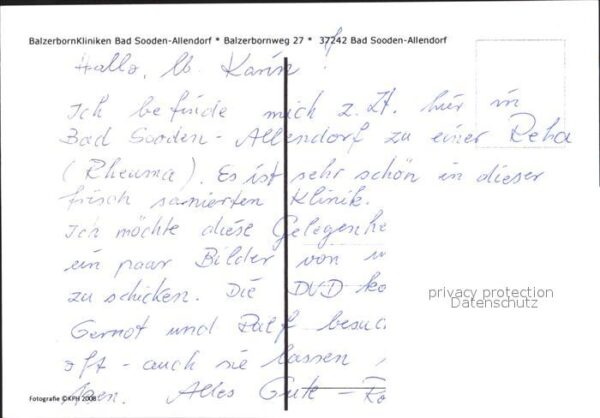 BalzerbornKliniken Bad Sooden-Allendorf * Balzerbornweg 27 * 37242 Bad Sooden-Allendorf
Hallo, lb. Karin!
Ich befinde mich z. Zt. hier in
Bad Sooden-Allendorf zu einer Reha
(Rheuma). Es ist sehr schön in dieser
frisch sanierten Klinik.
Ich möchte diese Gelegenhe
ein paar Bilder von
zu schicken. Die DVD ko
Gernot und Ralf besuc
oft - auch sie lassen
Alles Gute -
privacy protection
Datenschutz
Fotografie ©KPH 2008